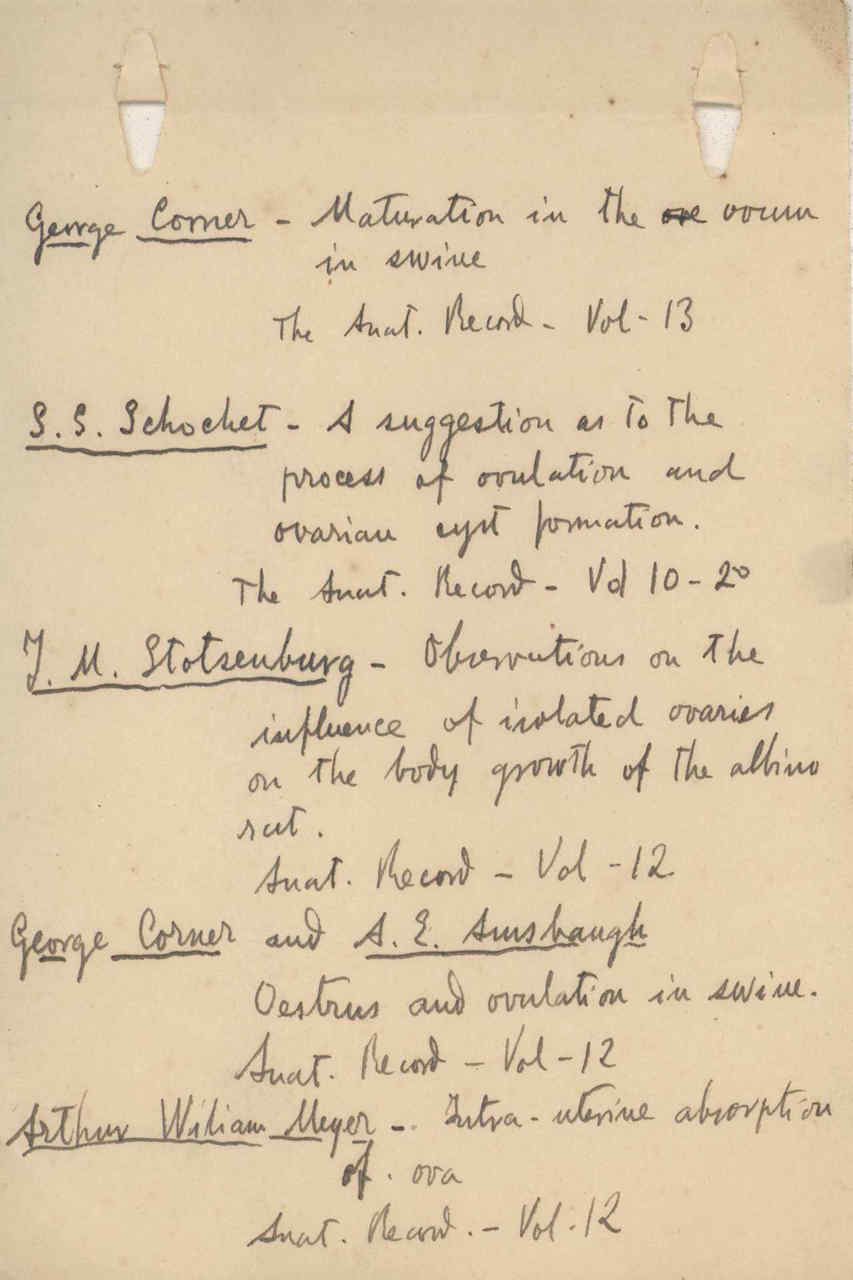 George Corner - Maturation in the ovum
in swine
The Anat. Record - Vol - 13
S. S. Schochet - A suggestion as to the
process of ovulation and
ovarian cyst formation.
The Anat. Record - Vol 10 - 20
J. M. Stotsenburg - Observations on the
influence of isolated ovaries
on the body growth of the albino
rat.
Anat. Record - Vol - 12
George Corner and A. E. Amsbaugh
Oestrus and ovulation in swine.
Anat. Record - Vol - 12
Arthur Wiliam Meyer - Intra-uterine absorption
of . ova
Anat. Record. - Vol. 12